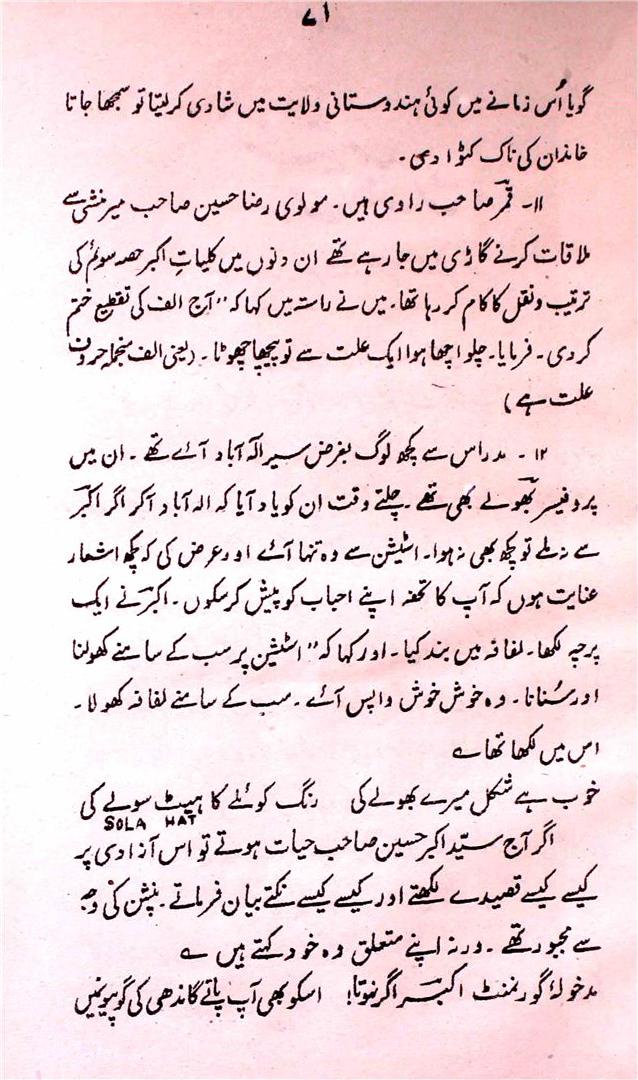 ۷۱
گویا اُس زمانے میں کوئی ہندوستانی ولایت میں شادی کر لیتا تو سمجھا جاتا
خاندان کی ناک کٹوا دی۔
۱۱۔ قمر صاحب راوی ہیں۔ مولوی رضا حسین صاحب میر منشی سے
ملاقات کرنے گاڑی میں جا رہے تھے ان دنوں میں کلیاتِ اکبر حصہ سوئم کی
ترتیب و نقل کا کام کر رہا تھا۔ میں نے راستہ میں کہا کہ "آج الف کی تقطیع ختم
کر دی۔ فرمایا۔ چلو اچھا ہوا ایک علت سے تو پیچھا چھوٹا۔ (یعنی الف منجملہ حروف
علت ہے)
۱۲۔ مدراس سے کچھ لوگ بغرض سیر الہ آباد آئے تھے۔ ان میں
پروفیسر بھولے بھی تھے۔ چلتے وقت ان کو یاد آیا کہ الہ آباد آکر اگر اکبر
سے نہ ملے تو کچھ بھی نہ ہوا۔ اسٹیشن سے وہ تنہا آئے اور عرض کی کہ کچھ اشعار
عنایت ہوں کہ آپ کا تحفہ اپنے احباب کو پیش کر سکوں۔ اکبر نے ایک
پرچہ لکھا۔ لفافہ میں بند کیا۔ اور کہا کہ "اسٹیشن پر سب کے سامنے کھولنا
اور سُنانا۔ وہ خوش خوش واپس آئے۔ سب کے سامنے لفافہ کھولا۔
اس میں لکھا تھا ؎
خوب ہے شکل میرے بھولے کی رنگ کوئلے کا ہیٹ سولے کی
SOLA HAT
اگر آج سیّد اکبر حسین صاحب حیات ہوتے تو اس آزادی پر
کیسے کیسے قصیدے لکھتے اور کیسے کیسے نکتے بیان فرماتے۔ پنشن کی وجہ
سے مجبور تھے۔ ورنہ اپنے متعلق وہ خود کہتے ہیں ؎
مدخولۂ گورنمنٹ اکبر اگر نہوتا! اسکو بھی آپ پاتے گاندھی کی گوپیونمیں